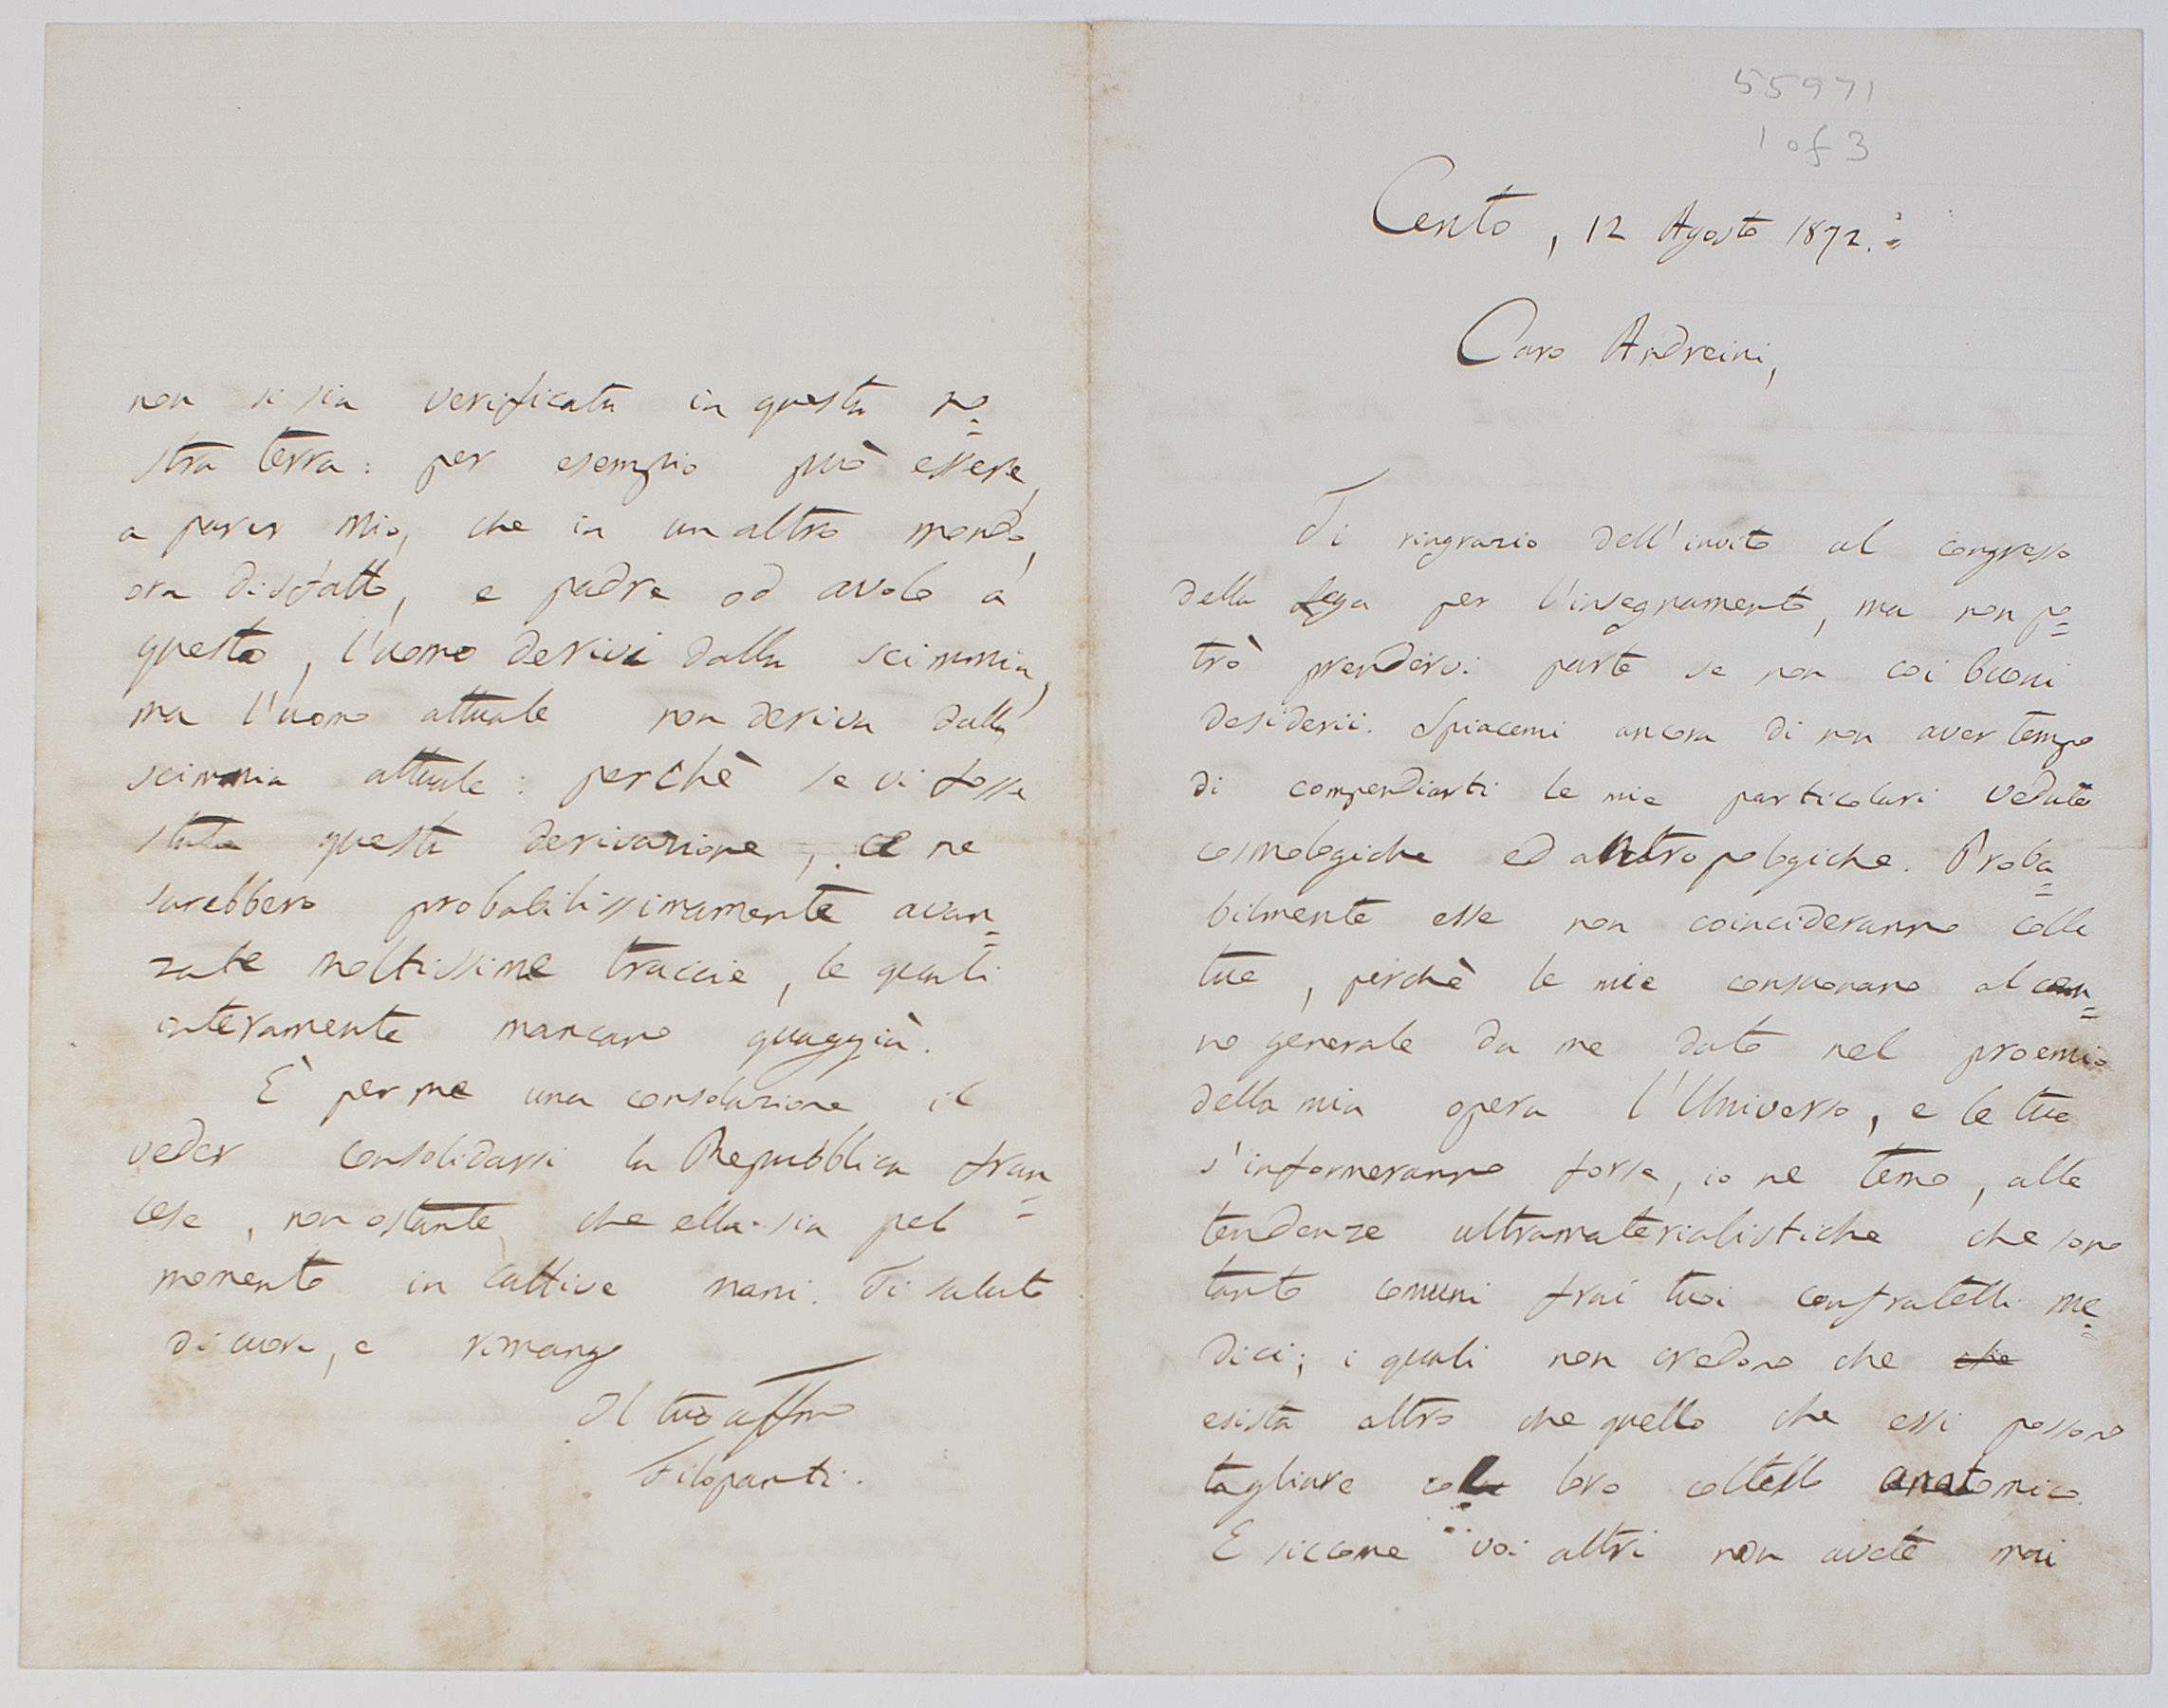 55971
1 of 3
Cento, 12 Agosto 1872.
Caro Andreini,
Ti ringrazio dell'invito al congresso
della Lega per l'insegnamento, ma non po=
trò prendervi parte se non coi buoni
desiderii. Spiacemi ancora di non aver tempo
di compendiarti le mie particolari vedute
cosmologiche ed antropologiche. Proba=
bilmente esse non coincideranno colle
tue, perchè le mie consuonano al cen=
no generale da me dato nel proemio
della mia opera l'Universo, e le tue
s'informeranno forse, io ne temo, alle
tendenze ultramaterialistiche che sono
tanto comuni frai tuoi confratelli me=
dici; i quali non credono che che
esista altro che quello che essi possono
tagliare col loro coltello anatomico.
E siccome voi altri non avete mai
non si sia verificata in questa no=
stra terra: per esempio può essere,
a parer mio, che in un altro mondo,
ora disfatto, e padre od avolo a
questo, l'uomo derivi dalla scimmia,
ma l'uomo attuale non deriva dalla
scimmia attuale: perchè se vi fosse
stata questa derivazione, ce ne
sarebbero probabilissimamente avan=
zate moltissime traccie, le quali
interamente mancano quaggià.
È per me una consolazione il
veder consolidarsi la Repubblica fran=
cese, non ostante che ella sia pel
momento in cattive mani. Ti saluto
di cuore, e rimango
Il tuo affmo
Filopanti.